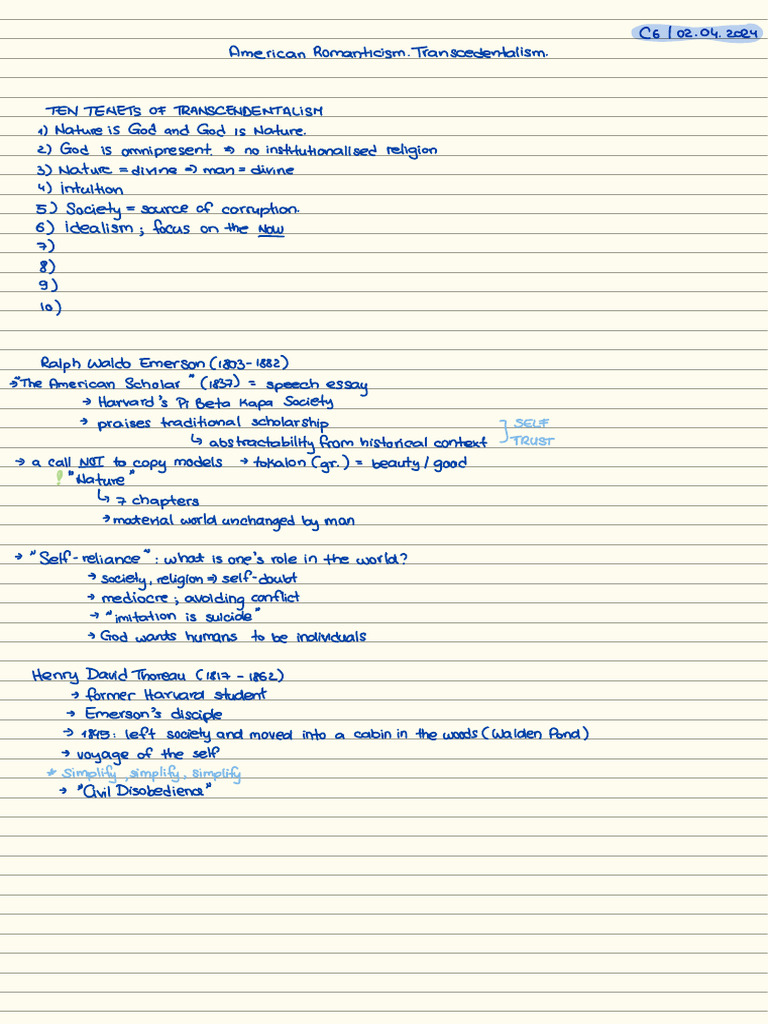 C6 | 02.04.2024
American Romanticism. Transcedentalism.
TEN TENETS OF TRANSCENDENTALISM
1) Nature is God and God is Nature.
2) God is omnipresent. ⇒ no institutionalised religion
3) Nature = divine ⇒ man = divine
4) intuition
5) Society = source of corruption.
6) idealism ; focus on the NOW
7)
8)
9)
10)
Ralph Waldo Emerson (1803 - 1882)
→ "The American Scholar" (1837) = speech essay
→ Harvard's Pi Beta Kapa Society
→ praises traditional scholarship
↳ abstractability from historical context } SELF TRUST
→ a call NOT to copy models → tokalon (gr.) = beauty / good
! "Nature"
↳ 7 chapters
→ material world unchanged by man
→ "Self-reliance" : what is one's role in the world?
→ society, religion ⇒ self-doubt
→ mediocre ; avoiding conflict
→ "imitation is suicide"
→ God wants humans to be individuals
Henry David Thoreau (1817 - 1862)
→ former Harvard student
→ Emerson's disciple
→ 1845: left society and moved into a cabin in the woods (Walden Pond)
→ voyage of the self
* simplify, simplify, simplify
→ "Civil Disobedience"